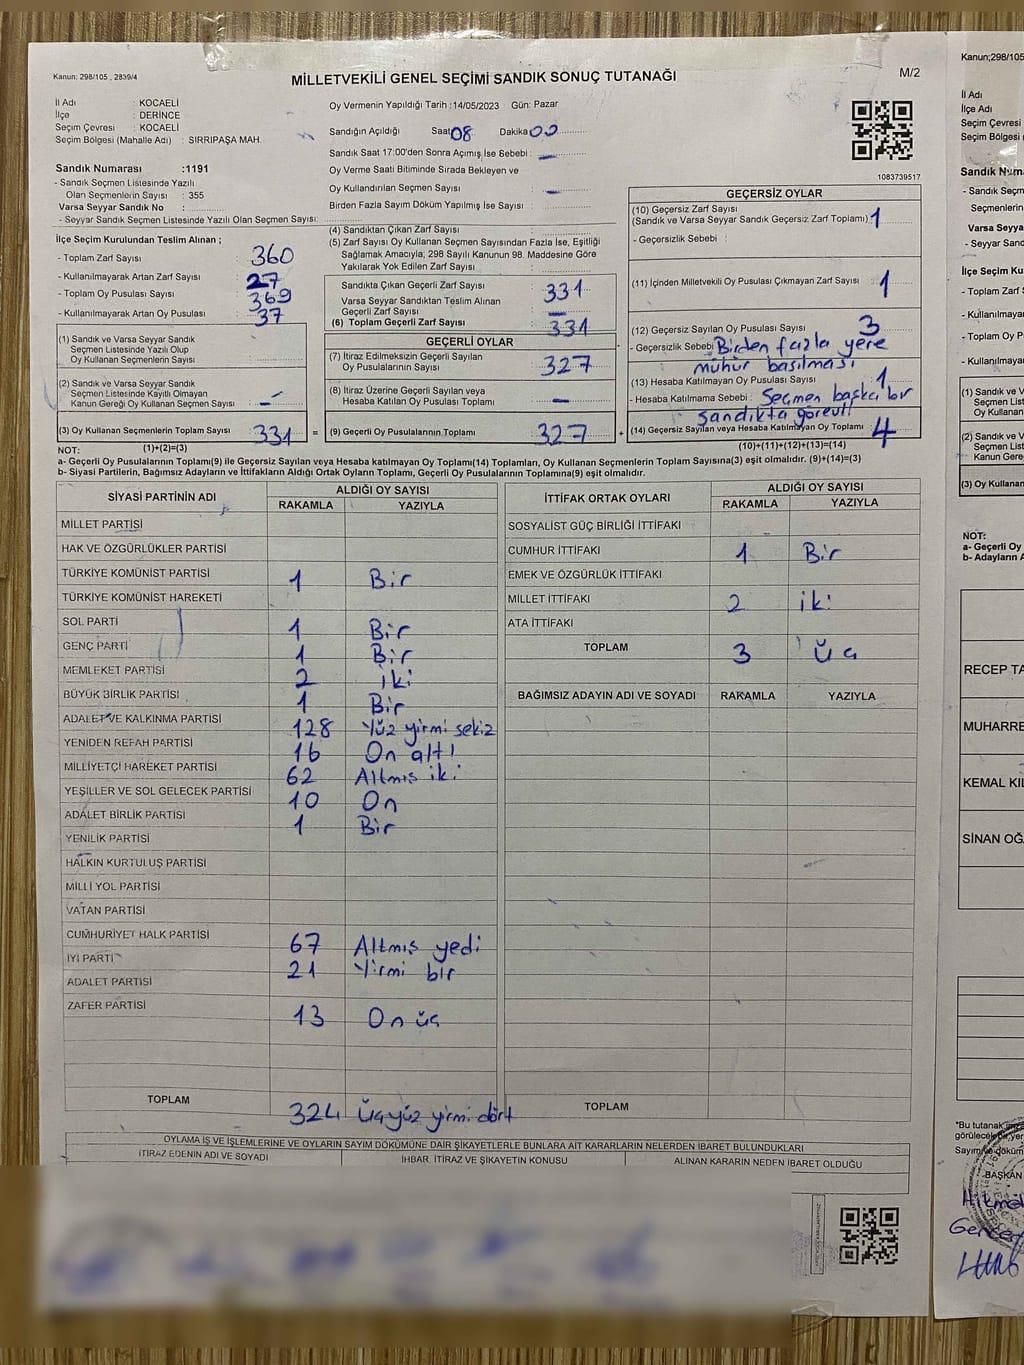 Kanun: 298/105 , 2839/4
MİLLETVEKİLİ GENEL SEÇİMİ SANDIK SONUÇ TUTANAĞI
M/2
İl Adı : KOCAELİ
İlçe : DERİNCE
Seçim Çevresi : KOCAELİ
Seçim Bölgesi (Mahalle Adı) : SIRRIPAŞA MAH.
Sandık Numarası :1191
- Sandık Seçmen Listesinde Yazılı
Olan Seçmenlerin Sayısı : 355
Varsa Seyyar Sandık No :
- Seyyar Sandık Seçmen Listesinde Yazılı Olan Seçmen Sayısı:
Oy Vermenin Yapıldığı Tarih :14/05/2023 Gün: Pazar
Sandığın Açıldığı Saat 08 Dakika 00
Sandık Saat 17:00'den Sonra Açımış İse Sebebi : –
Oy Verme Saati Bitiminde Sırada Bekleyen ve
Oy Kullandırılan Seçmen Sayısı –
Birden Fazla Sayım Döküm Yapılmış İse Sayısı :
1083739517
İlçe Seçim Kurulundan Teslim Alınan ;
- Toplam Zarf Sayısı : 360
- Kullanılmayarak Artan Zarf Sayısı : 27
- Toplam Oy Pusulası Sayısı : 369
- Kullanılmayarak Artan Oy Pusulası : 37
(1) Sandık ve Varsa Seyyar Sandık
Seçmen Listesinde Yazılı Olup
Oy Kullanan Seçmenlerin Sayısı
(2) Sandık ve Varsa Seyyar Sandık
Seçmen Listesinde Kayıtlı Olmayan
Kanun Gereği Oy Kullanan Seçmen Sayısı : –
(3) Oy Kullanan Seçmenlerin Toplam Sayısı 331 =
(4) Sandıktan Çıkan Zarf Sayısı :
(5) Zarf Sayısı Oy Kullanan Seçmen Sayısından Fazla İse, Eşitliği
Sağlamak Amacıyla, 298 Sayılı Kanunun 98. Maddesine Göre
Yakılarak Yok Edilen Zarf Sayısı :
Sandıkta Çıkan Geçerli Zarf Sayısı 331
Varsa Seyyar Sandıktan Teslim Alınan
Geçerli Zarf Sayısı –
(6) Toplam Geçerli Zarf Sayısı 331
GEÇERLİ OYLAR
(7) İtiraz Edilmeksizin Geçerli Sayılan
Oy Pusulalarının Sayısı 327
(8) İtiraz Üzerine Geçerli Sayılan veya
Hesaba Katılan Oy Pusulası Toplamı –
(9) Geçerli Oy Pusulalarının Toplamı 327 +
GEÇERSİZ OYLAR
(10) Geçersiz Zarf Sayısı
(Sandık ve Varsa Seyyar Sandık Geçersiz Zarf Toplamı) 1
- Geçersizlik Sebebi :
(11) İçinden Milletvekili Oy Pusulası Çıkmayan Zarf Sayısı 1
(12) Geçersiz Sayılan Oy Pusulası Sayısı 3
- Geçersizlik Sebebi Birden fazla yere
mühür basılması
(13) Hesaba Katılmayan Oy Pusulası Sayısı 1
- Hesaba Katılmama Sebebi : Seçmen başka bir
sandıkta görevli
(14) Geçersiz Sayılan veya Hesaba Katılmayan Oy Toplamı 4
NOT: (1)+(2)=(3) (10)+(11)+(12)+(13)=(14)
a- Geçerli Oy Pusulalarının Toplamı(9) ile Geçersiz Sayılan veya Hesaba katılmayan Oy Toplamı(14) Toplamları, Oy Kullanan Seçmenlerin Toplam Sayısına(3) eşit olmalıdır. (9)+(14)=(3)
b- Siyasi Partilerin, Bağımsız Adayların ve İttifakların Aldığı Ortak Oyların Toplamı, Geçerli Oy Pusulalarının Toplamına(9) eşit olmalıdır.
SİYASİ PARTİNİN ADI ALDIĞI OY SAYISI
RAKAMLA YAZIYLA
MİLLET PARTİSİ
HAK VE ÖZGÜRLÜKLER PARTİSİ
TÜRKİYE KOMÜNİST PARTİSİ 1 Bir
TÜRKİYE KOMÜNİST HAREKETİ
SOL PARTİ 1 Bir
GENÇ PARTİ 1 Bir
MEMLEKET PARTİSİ 2 iki
BÜYÜK BİRLİK PARTİSİ 1 Bir
ADALET VE KALKINMA PARTİSİ 128 Yüz yirmi sekiz
YENİDEN REFAH PARTİSİ 16 On altı
MİLLİYETÇİ HAREKET PARTİSİ 62 Altmış iki
YEŞİLLER VE SOL GELECEK PARTİSİ 10 On
ADALET BİRLİK PARTİSİ 1 Bir
YENİLİK PARTİSİ
HALKIN KURTULUŞ PARTİSİ
MİLLİ YOL PARTİSİ
VATAN PARTİSİ
CUMHURİYET HALK PARTİSİ 67 Altmış yedi
İYİ PARTİ 21 Yirmi bir
ADALET PARTİSİ
ZAFER PARTİSİ 13 On üç
TOPLAM 324 Üçyüz yirmi dört
İTTİFAK ORTAK OYLARI ALDIĞI OY SAYISI
RAKAMLA YAZIYLA
SOSYALİST GÜÇ BİRLİĞİ İTTİFAKI
CUMHUR İTTİFAKI 1 Bir
EMEK VE ÖZGÜRLÜK İTTİFAKI
MİLLET İTTİFAKI 2 iki
ATA İTTİFAKI
TOPLAM 3 Üç
BAĞIMSIZ ADAYIN ADI VE SOYADI RAKAMLA YAZIYLA
TOPLAM
OYLAMA İŞ VE İŞLEMLERİNE VE OYLARIN SAYIM DÖKÜMÜNE DAİR ŞİKAYETLERLE BUNLARA AİT KARARLARIN NELERDEN İBARET BULUNDUKLARI
İTİRAZ EDENİN ADI VE SOYADI İHBAR, İTİRAZ VE ŞİKAYETİN KONUSU ALINAN KARARIN NEDEN İBARET OLDUĞU
Kanun;298/105
İl Adı
İlçe Adı
Seçim Çevresi
Seçim Bölgesi
Sandık Num
- Sandık Seçm
Seçmenlerin
Varsa Seyya
- Seyyar Sand
İlçe Seçim Ku
- Toplam Zarf
- Kullanılmaya
- Toplam Oy P
- Kullanılmaya
(1) Sandık ve
Seçmen List
Oy Kullanan
(2) Sandık ve
Seçmen List
Kanun Gere
(3) Oy Kullanan
NOT:
a- Geçerli Oy
b- Adayların A
RECEP TA
MUHARRE
KEMAL KIL
SİNAN OĞ
"Bu tutanak
görülecek
Sayım
BAŞKAN